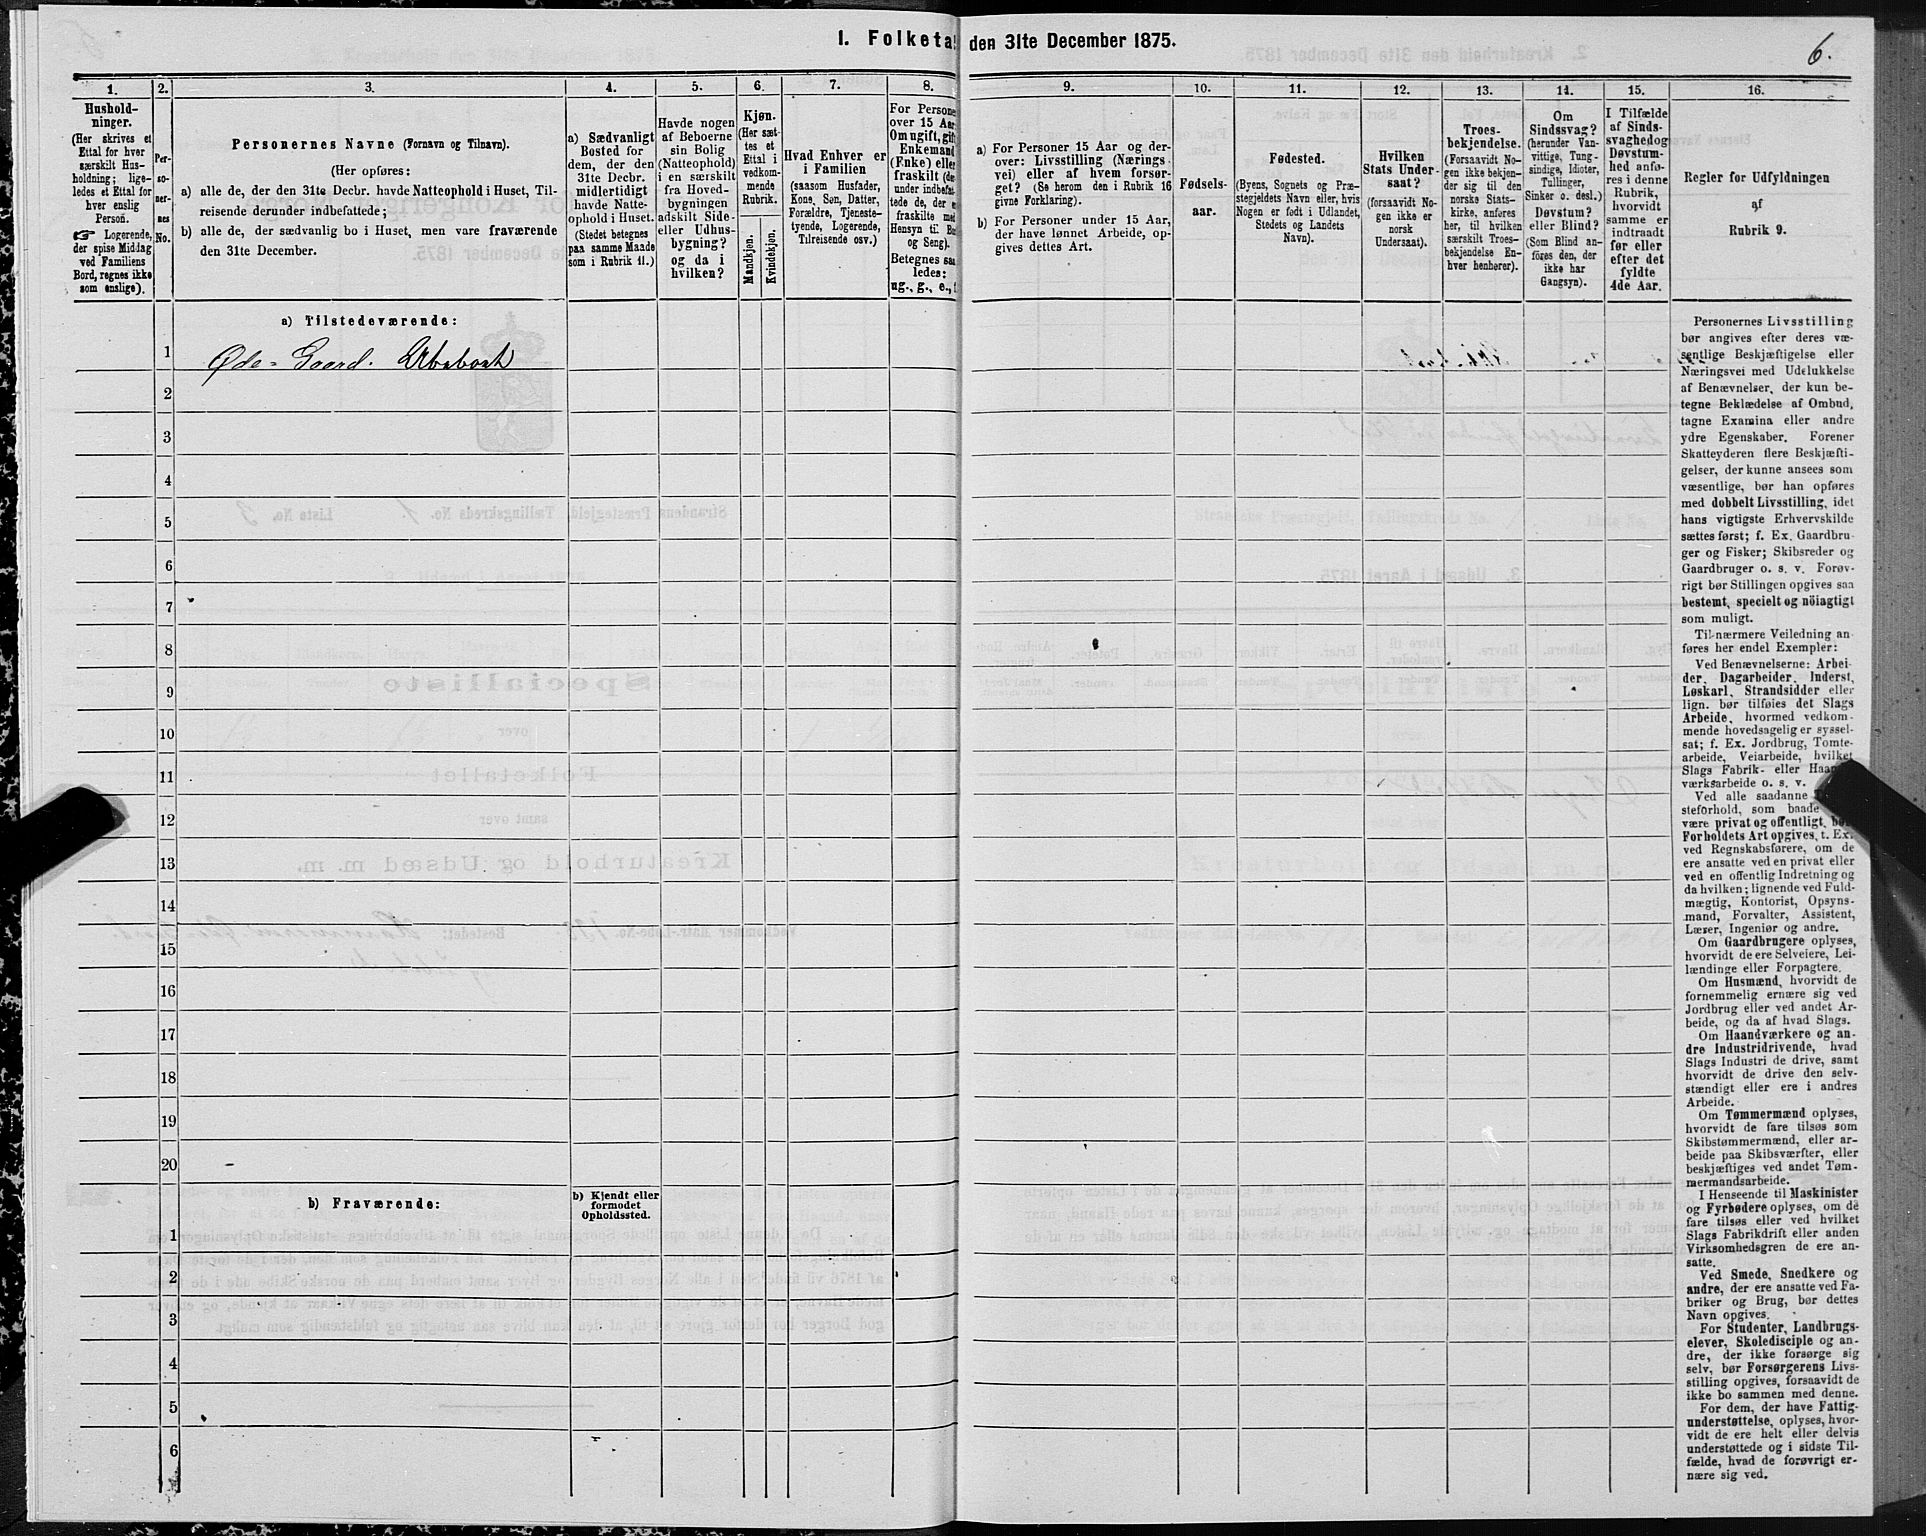 I. Folketa den 31te December 1875.
6.
1.
Hushold-
ninger.
(Her skrives et
Ettal for hver
særskilt Hus-
holdning; lige-
ledes et Ettal for
hver enslig
Person.
☞ Logerende,
der spise Middag
ved Familiens
Bord, regnes ikke
som enslige).
2.
Per-
so-
ner-
nes
No.
3.
Personernes Navne (Fornavn og Tilnavn).
(Her opføres:
a) alle de, der den 31te Decbr. havde Natteophold i Huset, Til-
reisende derunder indbefattede;
b) alle de, der sædvanlig bo i Huset, men vare fraværende
den 31te December.
4.
a) Sædvanligt
Bosted for
dem, der den
31te Decbr.
midlertidigt
havde Natte-
ophold i Huset.
(Stedet betegnes
paa samme Maade
som i Rubrik 11.)
5.
Havde nogen
af Beboerne
sin Bolig
(Natteophold)
i en særskilt
fra Hoved-
bygningen
adskilt Side-
eller Udhus-
bygning?
og da i
hvilken?
6.
Kjøn.
(Her sæt-
tes et
Ettal i
vedkom-
mende
Rubrik.
Mandkjøn.
Kvindekjøn.
7.
Hvad Enhver er
i Familien
(saasom Husfader,
Kone, Søn, Datter,
Forældre, Tjeneste-
tyende, Logerende,
Tilreisende osv.)
8.
For Persone
over 15 Aar
Om ugift, gift
Enkemand
(Enke) eller
fraskilt (de
under indbefat
tede de, der e
fraskilte med
Hensyn til Bo
og Seng).
Betegnes saa
ledes:
ug., g., e., f
9.
a) For Personer 15 Aar og der-
over: Livsstilling (Nærings
vei) eller af hvem forsør-
get? (Se herom den i Rubrik 16
givne Forklaring).
b) For Personer under 15 Aar,
der have lønnet Arbeide, op-
gives dettes Art.
10.
Fødsels-
aar.
11.
Fødested.
(Byens, Sognets og Præ-
stegjeldets Navn eller, hvis
Nogen er født i Udlandet,
Stedets og Landets
Navn).
12.
Hvilken
Stats Under-
saat?
(forsaavidt No-
gen ikke er
norsk
Undersaat).
13.
Troes-
bekjendelse.
(Forsaavidt No-
gen ikke bekjen-
der sig til den
norske Stats-
kirke, anføres
her, til hvilken
særskilt Troes-
bekjendelse En-
hver henhører).
14.
Om
Sindssvag?
(herunder Van-
vittige, Tung-
sindige, Idioter,
Tullinger,
Sinker o. desl.)
Døvstum?
eller Blind?
(Som Blind an-
føres den, der
ikke har
Gangsyn).
15.
I Tilfælde
af Sinds-
svaghedog
Døvstum-
hed anfø-
res i denne
Rubrik,
hvorvidt
samme er
indtraadt
før eller
efter det
fyldte
4de Aar.
16.
Regler for Udfyldningen
af
Rubrik 9.
a) Tilstedeværende:
1 Øde-Gaard.
2
3
4
5
6
7
8
9
10
11
12
13
14
15
16
17
18
19
20
b) Fraværende:
b) Kjendt eller
formodet
Opholdssted.
1
2
3
4
5
6
Personernes Livsstilling
bør angives efter deres væ-
sentlige Beskjæftigelse eller
Næringsvei med Udelukkelse
af Benævnelser, der kun be-
tegne Beklædelse af Ombud,
tagne Examina eller andre
ydre Egenskaber. Forener
Skatteyderen flere Beskjæfti-
gelser, der kunne ansees som
væsentlige, bør han opføres
med dobbelt Livsstilling, idet
hans vigtigste Erhvervskilde
sættes først; f. Ex. Gaardbru-
ger og Fisker; Skibsreder og
Gaardbruger o. s. v. Forøv-
rigt bør Stillingen opgives saa
bestemt, specielt og nöiagtigt
som muligt.
Til nærmere Veiledning an
føres her endel Exempler:
Ved Benævnelserne: Arbei-
der, Dagarbeider, Inderst,
Løskarl, Strandsidder eller
lign. bør tilføies det Slags
Arbeide, hvormed vedkom-
mende hovedsagelig er syssel-
sat; f. Ex. Jordbrug, Tomte-
arbeide, Veiarbeide, hvilket
Slags Fabrik- eller Haan
værksarbeide o. s. v.
Ved alle saadanne
steforhold, som baade
være privat og offentligt, bør
Forholdets Art opgives, t. Ex.
ved Regnskabsførere, om de
ere ansatte ved en privat eller
ved en offentlig Indretning og
da hvilken; lignende ved Fuld-
mægtig, Kontorist, Opsyns-
mand, Forvalter, Assistent,
Lærer, Ingeniør og andre.
Om Gaardbrugere oplyses,
hvorvidt de ere Selveiere, Lei-
lændinge eller Forpagtere.
Om Husmænd, hvorvidt de
fornemmelig ernære sig ved
Jordbrug eller ved andet Ar-
beide, og da af hvad Slags.
Om Haandværkere og an-
dre Industridrivende, hvad
Slags Industri de drive, samt
hvorvidt de drive den selv-
stændigt eller ere i andres
Arbeide.
Om Tømmermænd oplyses,
hvorvidt de fare tilsøs som
Skibstømmermænd, eller ar-
beide paa Skibsværfter, eller
beskjæftiges ved andet Tøm-
mermandsarbeide.
I Henseende til Maskinister
og Fyrbødere oplyses, om de
fare tilsøs eller ved hvilket
Slags Fabrikdrift eller anden
Virksomhedsgren de ere an-
satte.
Ved Smede, Snedkere og
andre, der ere ansatte ved Fa-
briker og Brug, bør dettes
Navn opgives.
For Studenter, Landbrugs-
elever, Skoledisciple og an-
dre, der ikke forsørge sig
selv, bør Forsørgerens Livs-
stilling opgives, forsaavidt de
ikke bo sammen med denne.
For dem, der have Fattig-
understøttelse, oplyses, hvor-
vidt de ere helt eller delvis
understøttede og i sidste Til-
fælde, hvad de forøvrigt er-
nære sig ved.